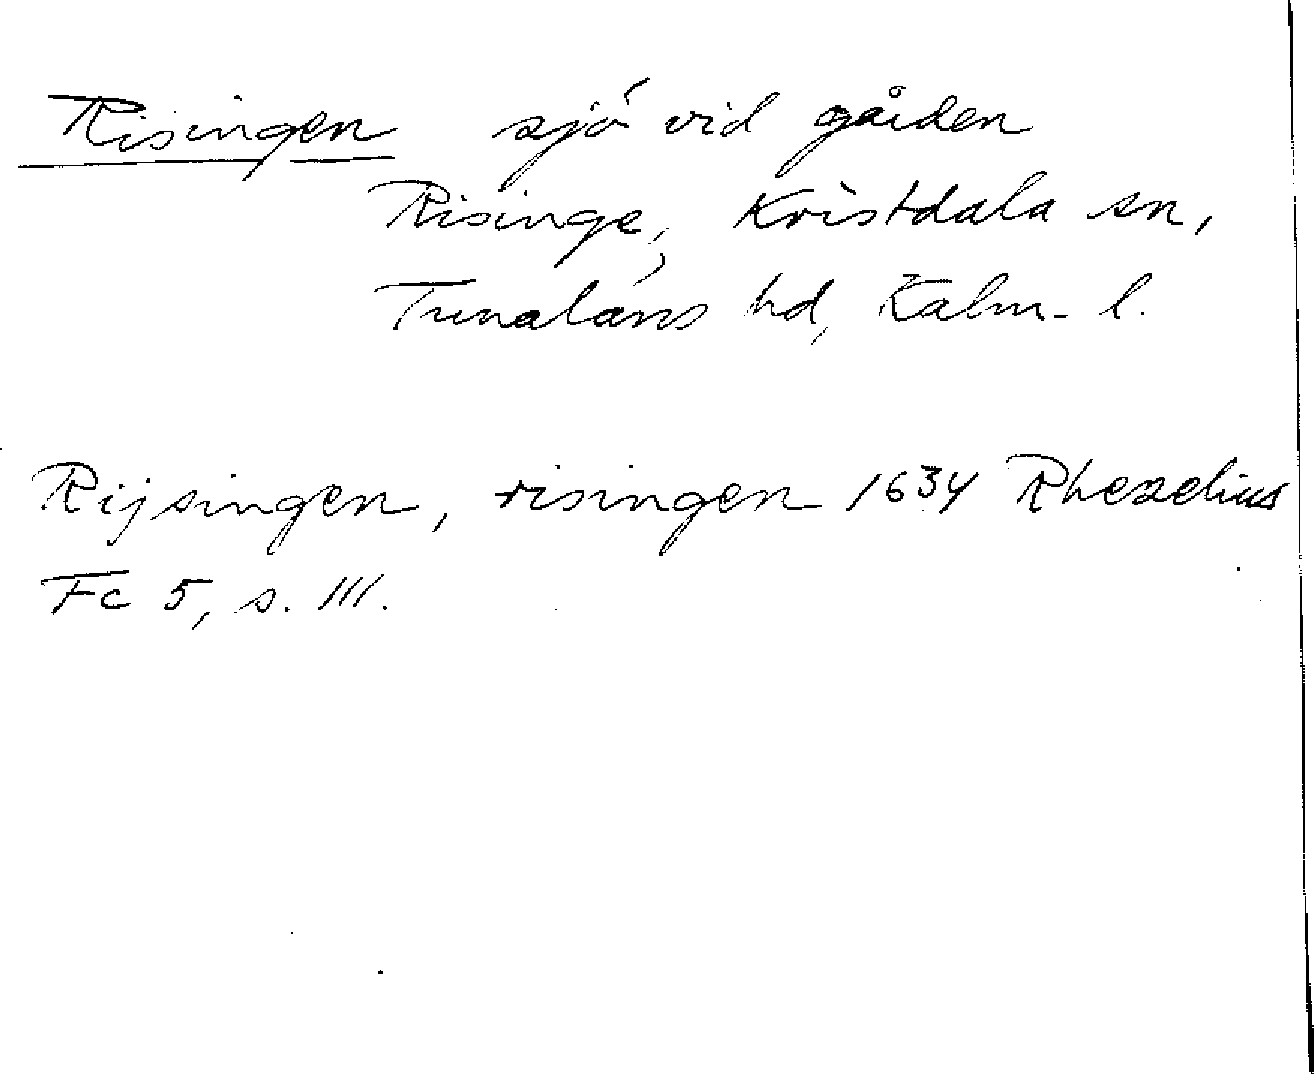 Risingen sjö vid gården
Risinge, Kristdala sn,
Tunaläns hd, Kalm. l.
Rijsingen, risingen 1634 Rhezelius
Fc 5, s. 111.